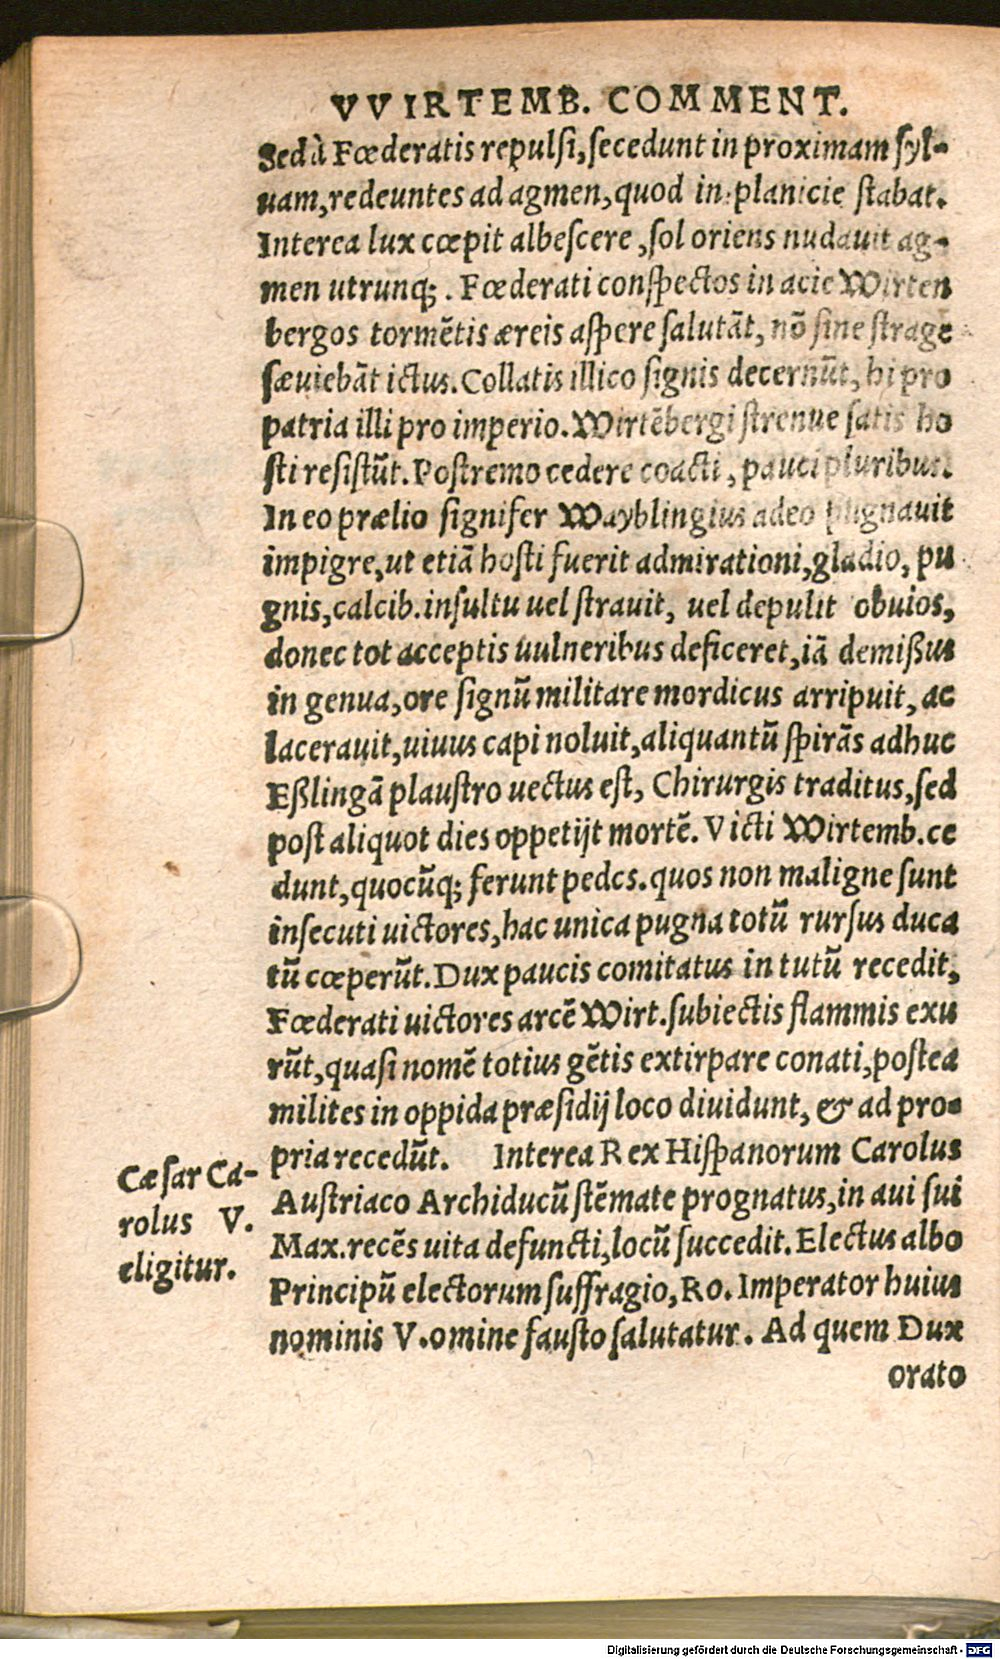 VVIRTEMB. COMMENT.
Sed à Fœderatis repulsi, secedunt in proximam syl-
uam, redeuntes ad agmen, quod in planicie stabat.
Interea lux cœpit albescere, sol oriens nudauit ag-
men utrunq;. Fœderati conspectos in acie Wirten
bergos tormẽtis æreis aspere salutãt, nõ sine strage
sæuiebãt ictus. Collatis illico signis decernũt, hi pro
patria illi pro imperio. Wirtẽbergi strenue satis ho
sti resistũt. Postremo cedere coacti, pauci pluribus.
In eo prælio signifer Wayblingius adeo pugnauit
impigre, ut etiã hosti fuerit admirationi, gladio, pu
gnis, calcib. insultu uel strauit, uel depulit obuios,
donec tot acceptis uulneribus deficeret, iã demißus
in genua, ore signũ militare mordicus arripuit, ac
lacerauit, uiuus capi noluit, aliquantũ spirãs adhuc
Eßlingã plaustro uectus est, Chirurgis traditus, sed
post aliquot dies oppetijt mortẽ. Victi Wirtemb. ce
dunt, quocũq; ferunt pedes. quos non maligne sunt
insecuti uictores, hac unica pugna totũ rursus duca
tũ cœperũt. Dux paucis comitatus in tutũ recedit,
Fœderati uictores arcẽ Wirt. subiectis flammis exu
rũt, quasi nomẽ totius gẽtis extirpare conati, postea
milites in oppida præsidij loco diuidunt, & ad pro-
pria recedũt. Interea Rex Hispanorum Carolus
Austriaco Archiducũ stẽmate prognatus, in aui sui
Max. recẽs uita defuncti, locũ succedit. Electus albo
Principũ electorum suffragio, Ro. Imperator huius
nominis V. omine fausto salutatur. Ad quem Dux
orato
Cæsar Ca-
rolus V.
eligitur.
Digitalisierung gefördert durch die Deutsche Forschungsgemeinschaft - DFG